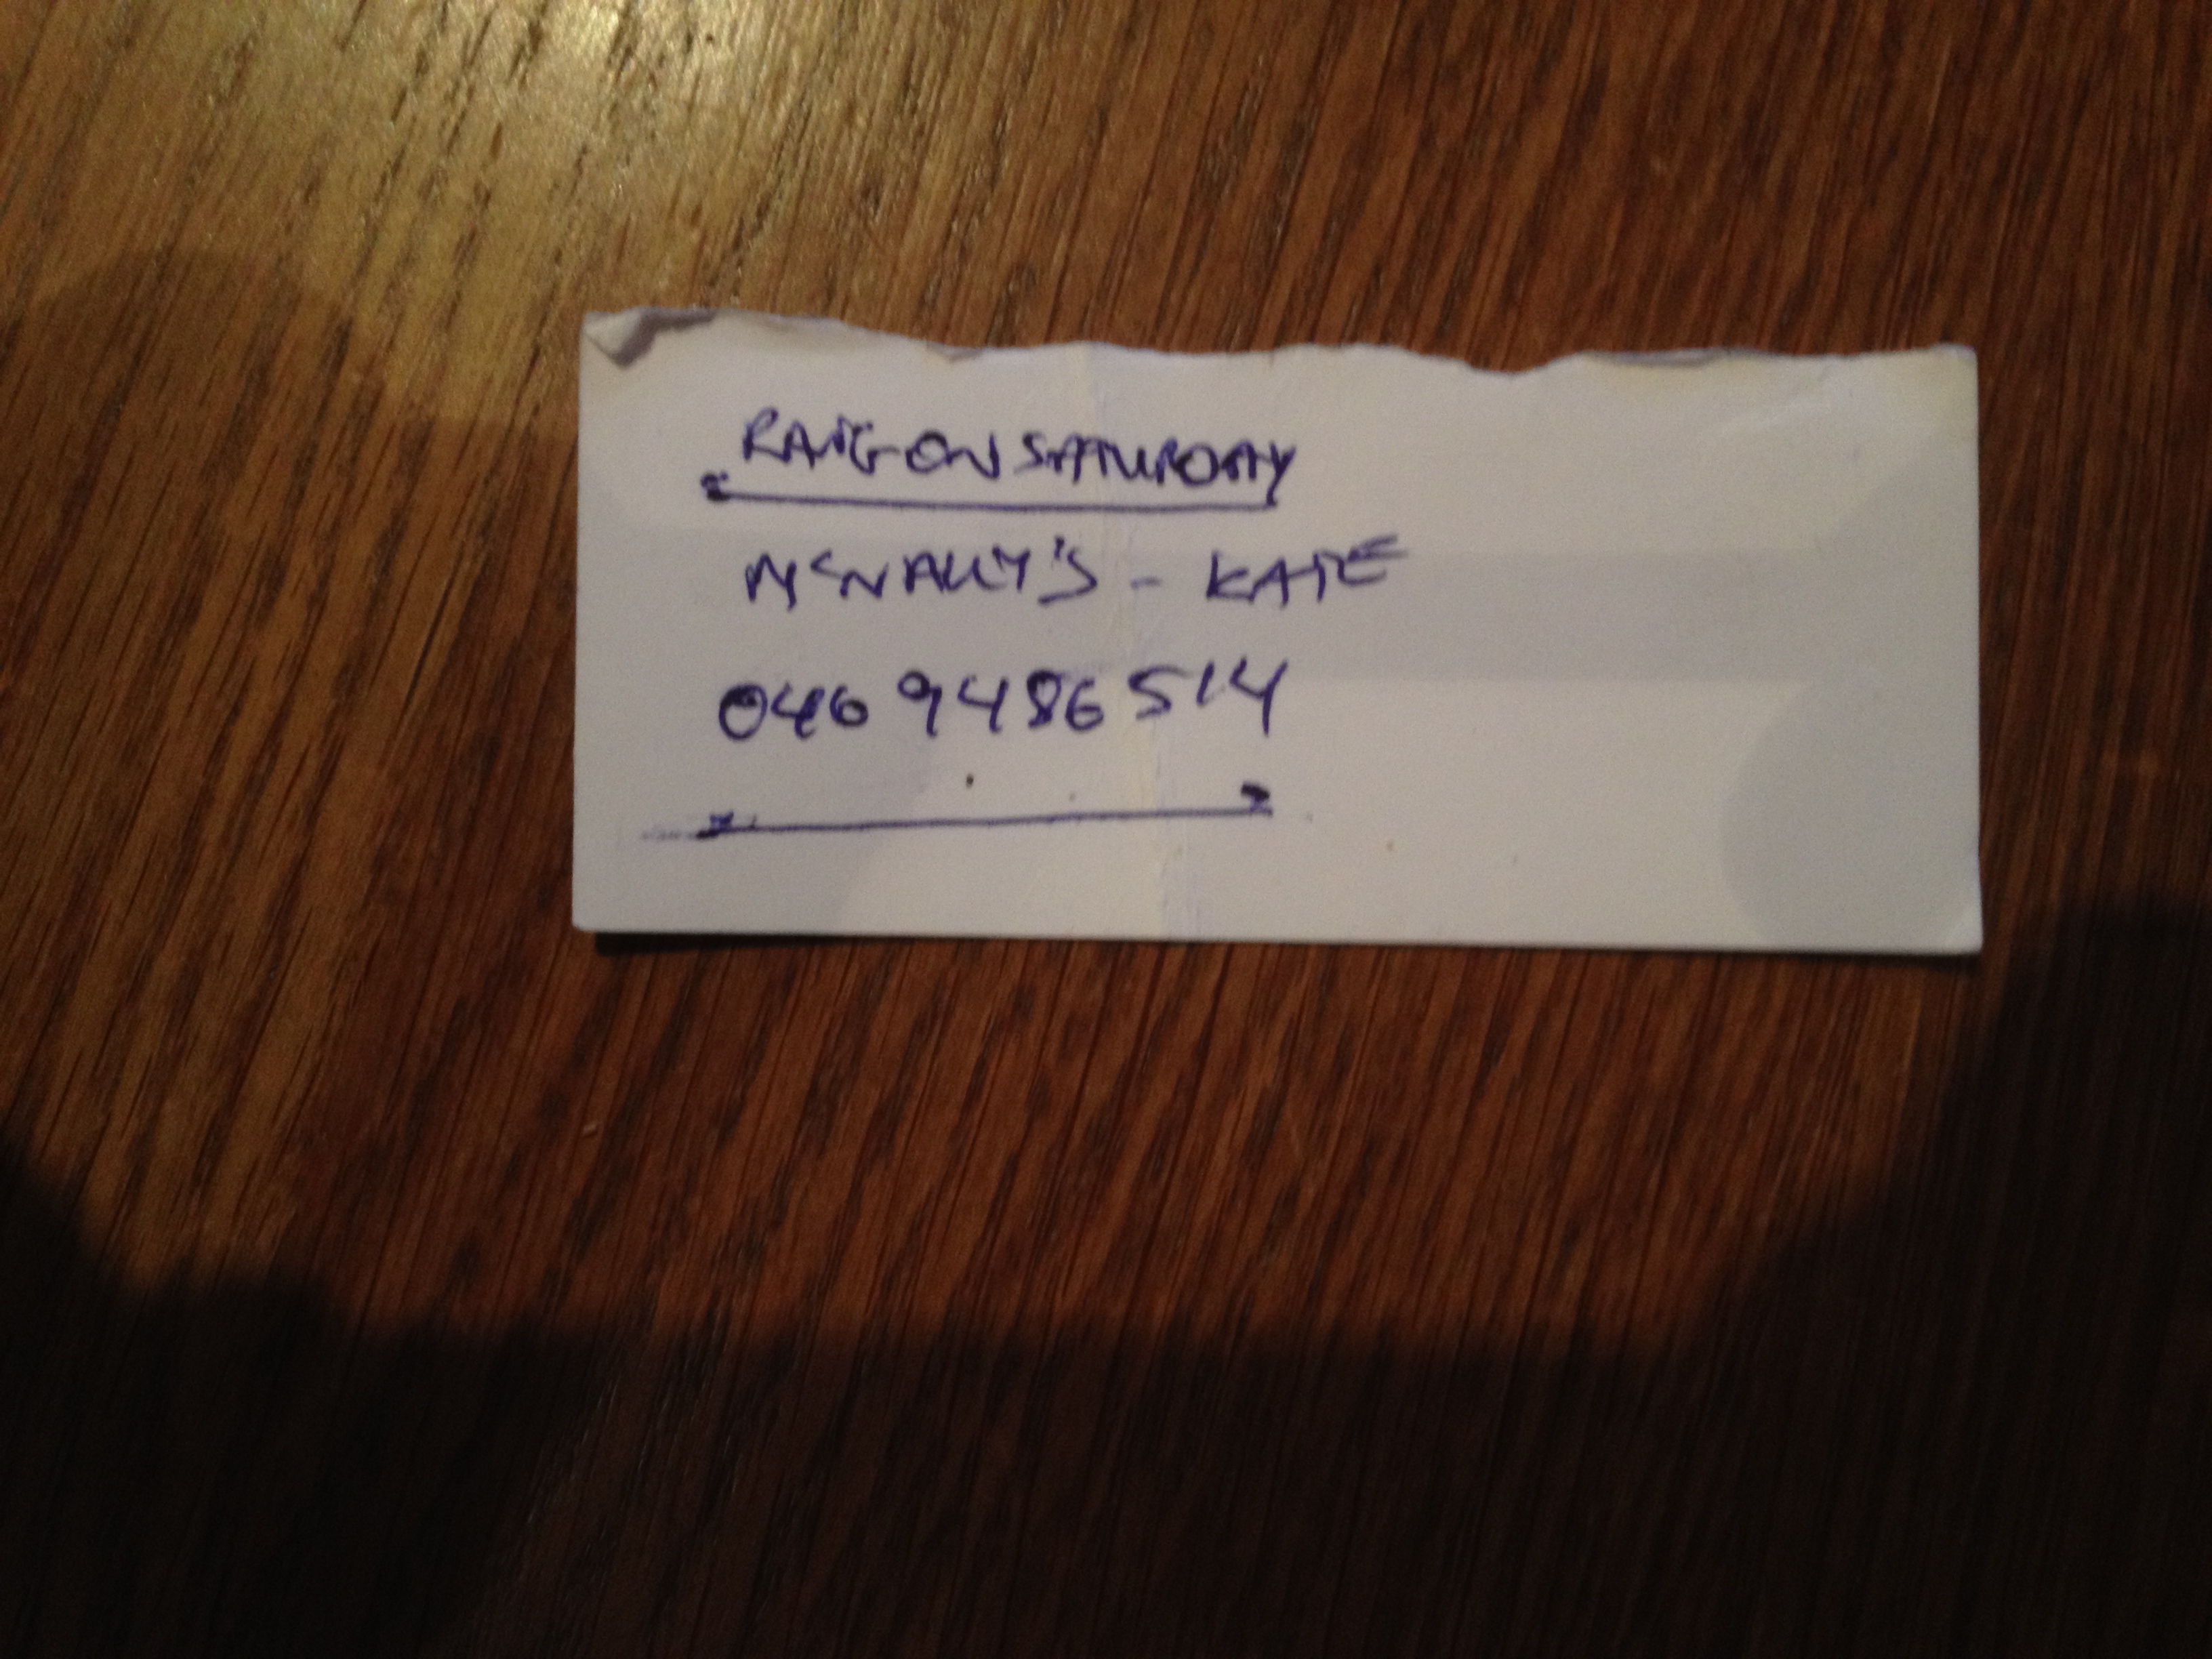 RANG ON SATURDAY
McNALLY'S - KATE
046 9486514